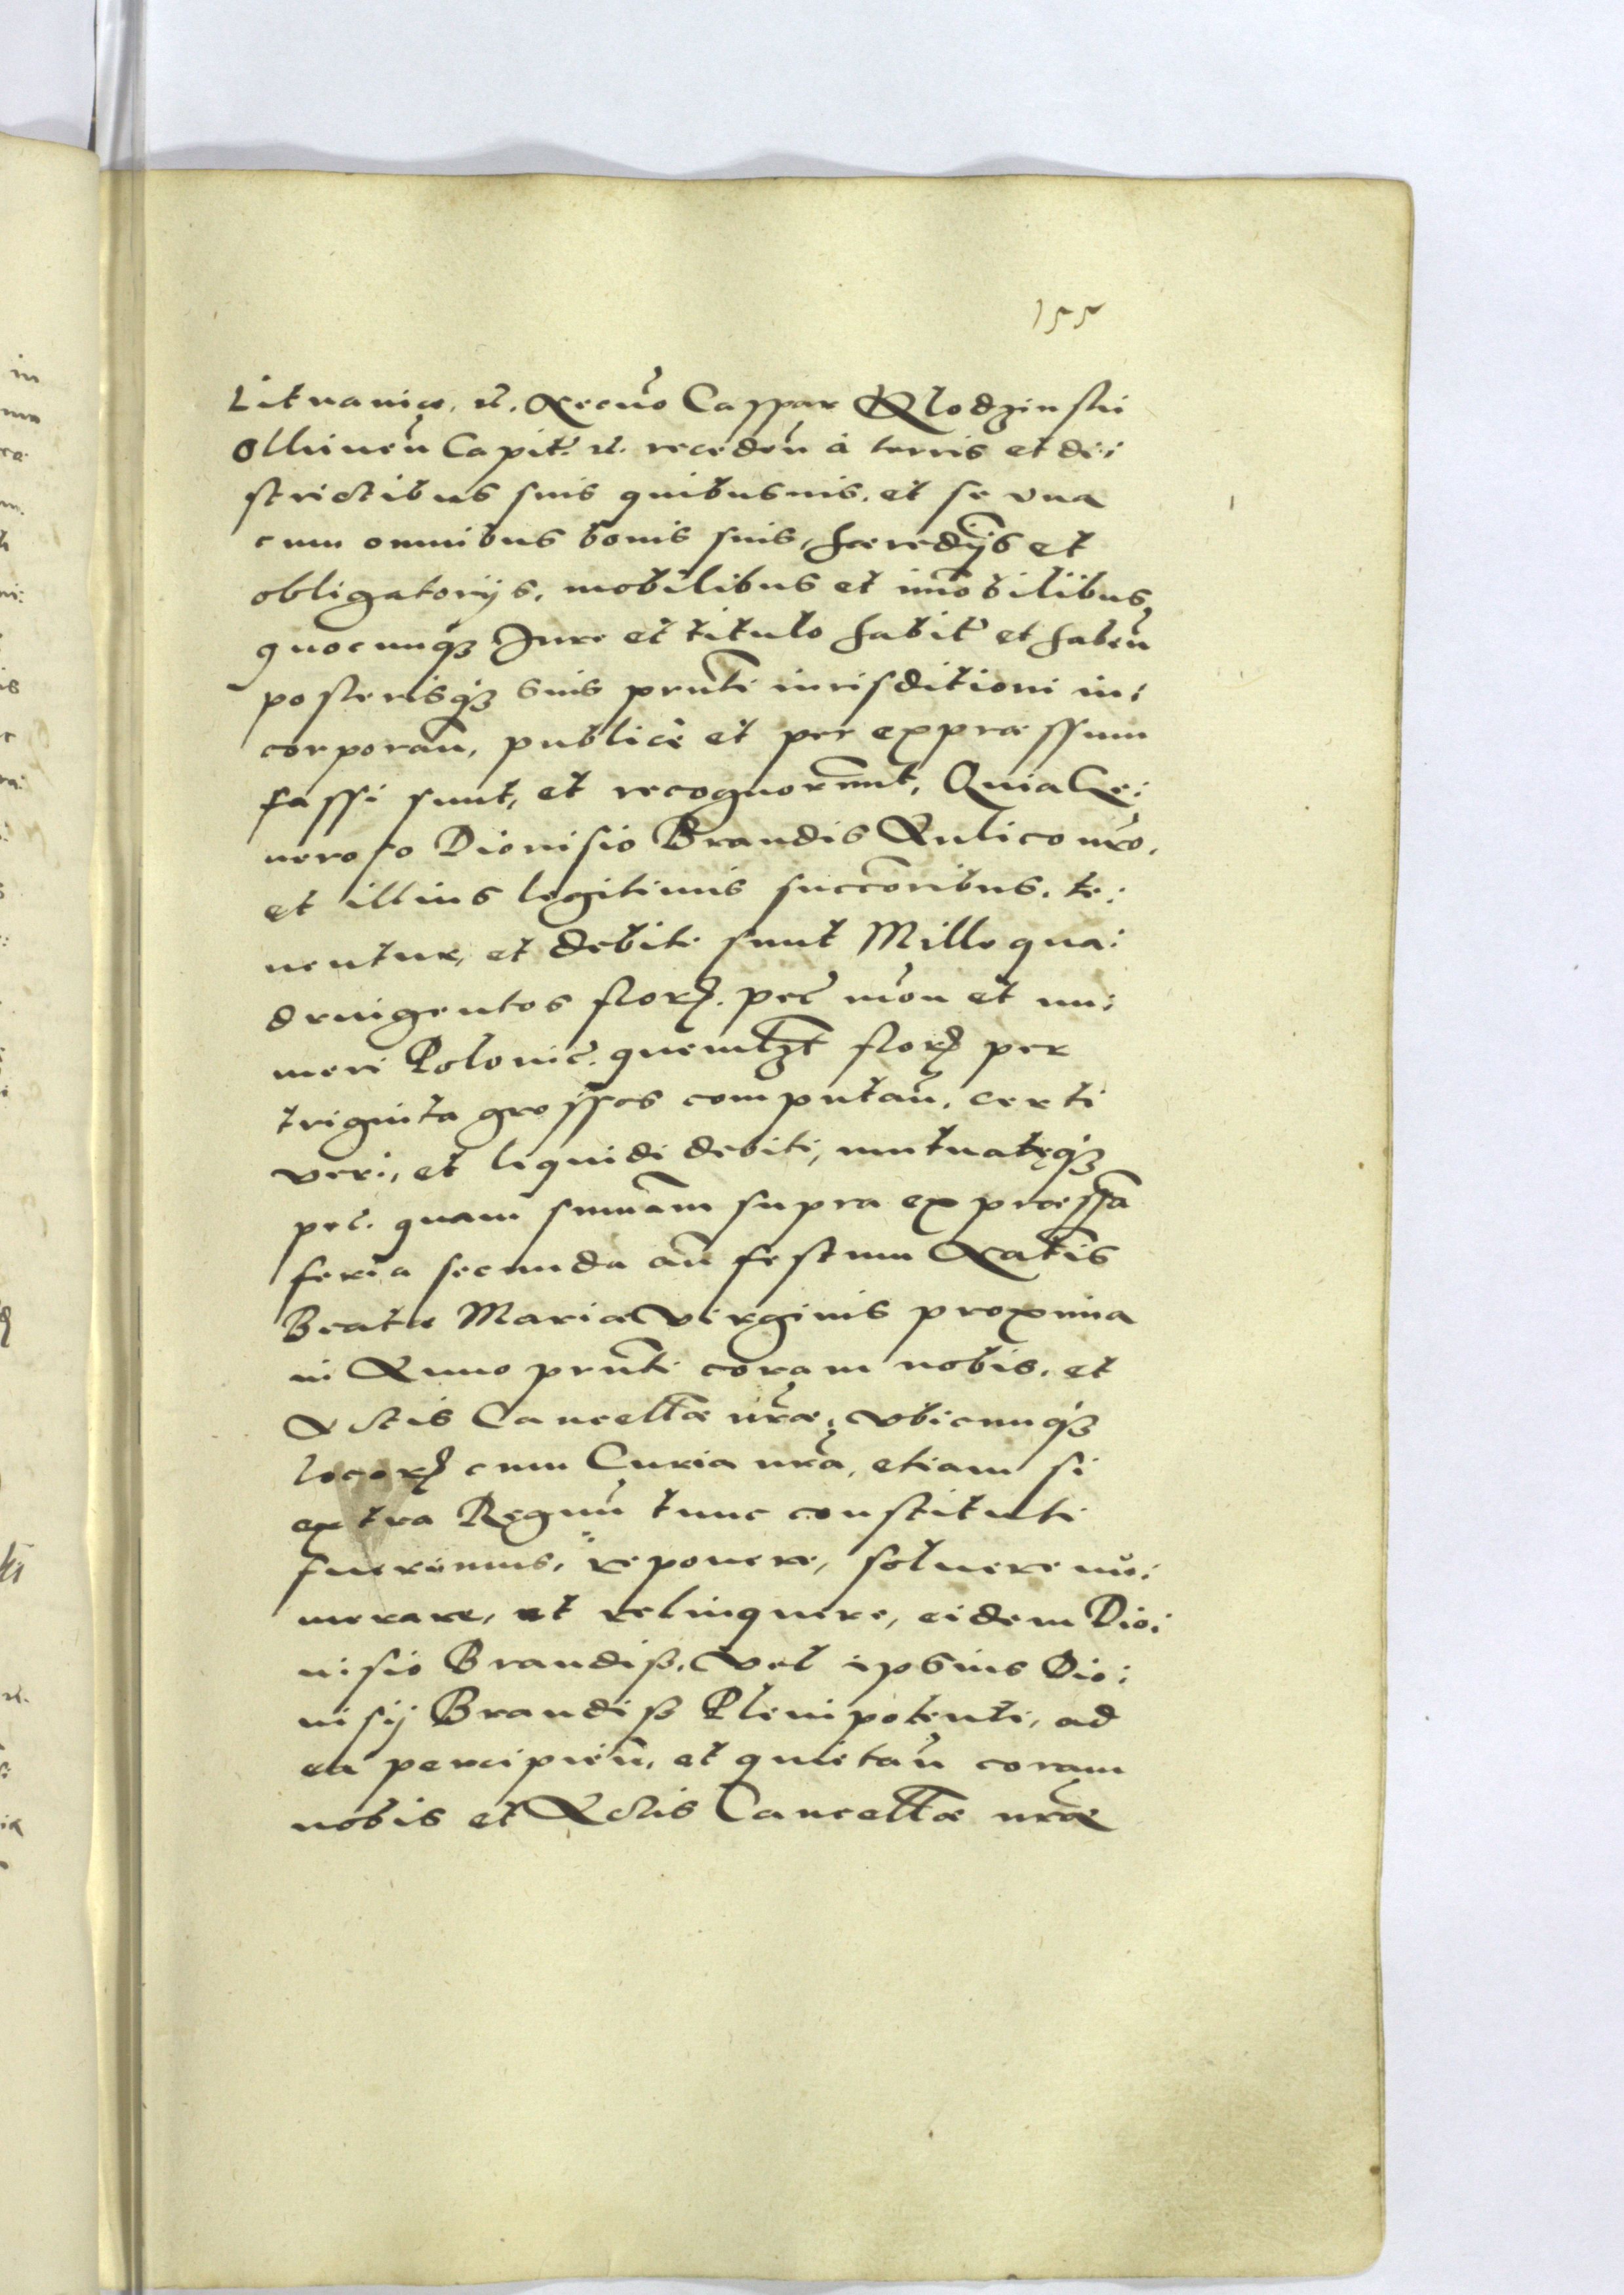 155
Lituaniæ, etc. Necnō Caspar Klodzinskii
Olkinen̄ Capit. etc. recedeñ à terris et di:
strictibus suis quibusuis, et se vna
cum omnibus bonis suis, hæredijs et
obligatorijs, mobilibus et im̄obilibus,
quocunq3 Jure et titulo habit̄ et habeñ
posterisq3 suis prn̄ti iurisditioni in:
corporañ, publicè et per expræssum
fassi sunt, et recognorūnt, Quia Ge:
neroso Dionisio Brandis Aulico nr̄o,
et illius legitimis succōribus, te:
nentur, et debiti sunt Mille qua:
dringentos flor. pec̄ mon̄ et nu:
meri Polonic̄. quemlȝt flor per
triginta grossos computañ, certi
veri, et liquidi debiti, mutuatęq3
pec̄. quam summām supra expræssā
feria secunda añ festum Natīs
Beatæ Mariæ Virginis proxima
in Anno prn̄ti coram nobis, et
Actis Cancellāæ nr̄æ, vbicunq3
locor cum Curia nr̄a, etiam si
extra Regnū tunc constituti
fuerimus, reponere, soluere nu:
merare, et relinquere, eidem Dio:
nisio Brandiß, vel ipsius Dio:
nisij Brandiß Plenipotenti, ad
ea percipieñ, et quietañ coram
nobis et Actis Cancellāæ nr̄æ